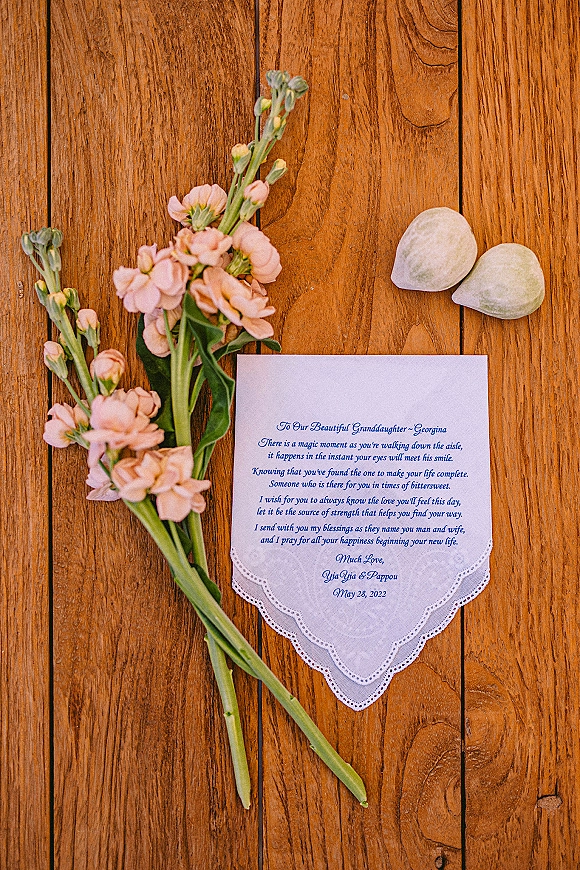 To Our Beautiful Granddaughter ~ Georgina
There is a magic moment as you're walking down the aisle,
it happens in the instant your eyes will meet his smile.
Knowing that you've found the one to make your life complete.
Someone who is there for you in times of bittersweet.
I wish for you to always know the love you'll feel this day,
let it be the source of strength that helps you find your way.
I send with you my blessings as they name you man and wife,
and I pray for all your happiness beginning your new life.
Much Love,
YiaYia & Pappou
May 28, 2022